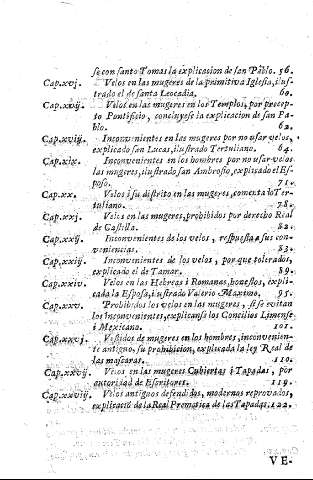 se con santo Tomas la explicacion de san Pablo. 56.
Cap.xvj. Velos en las mugeres de la primitiva Iglesia, ilus-
trado el de santa Leocadia. 60.
Cap.xvij. Velos en las mugeres en los Templos, por precep-
to Pontificio, concluyese la explicacion de san Pa-
blo. 62.
Cap.xviij. Inconvenientes en las mugeres por no usar velos,
explicado san Lucas, ilustrado Tertuliano. 64.
Cap.xix. Inconvenientes en los hombres por no usar velos
las mugeres, ilustrado san Ambrosio, explicado el Es-
poso. 71.
Cap.xx. Velos i su distrito en las mugeres, comenta lo Ter-
tuliano. 78.
Cap.xxj. Velos en mugeres, prohibidos por derecho Real
de Castilla. 82.
Cap.xxij. Inconvenientes de los velos, respuesta a sus con-
veniencias. 83.
Cap.xxiij. Inconvenientes de los velos, por que tolerados,
explicado el de Tamar. 89.
Cap.xxiv. Velos en las Hebreas i Romanas, honestos, expli-
cada la Esposa, ilustrado Valerio Maximo. 95.
Cap.xxv. Prohibidos los velos en las mugeres, si se evitan
los inconvenientes, explicanse los Concilios Limense
i Mexicano. 101.
Cap.xxvj. Vestidos de mugeres en los hombres, inconvenien-
te antiguo, su prohibicion, explicada la ley Real de
las mascaras. 110.
Cap.xxvij. Velos en las mugeres Cubiertas i Tapadas, por
autoridad de Escritores. 119.
Cap.xxviij. Velos antiguos defendidos, modernos reprovados,
explicació de la Real Prematica de las Tapadas. 122.
VE-